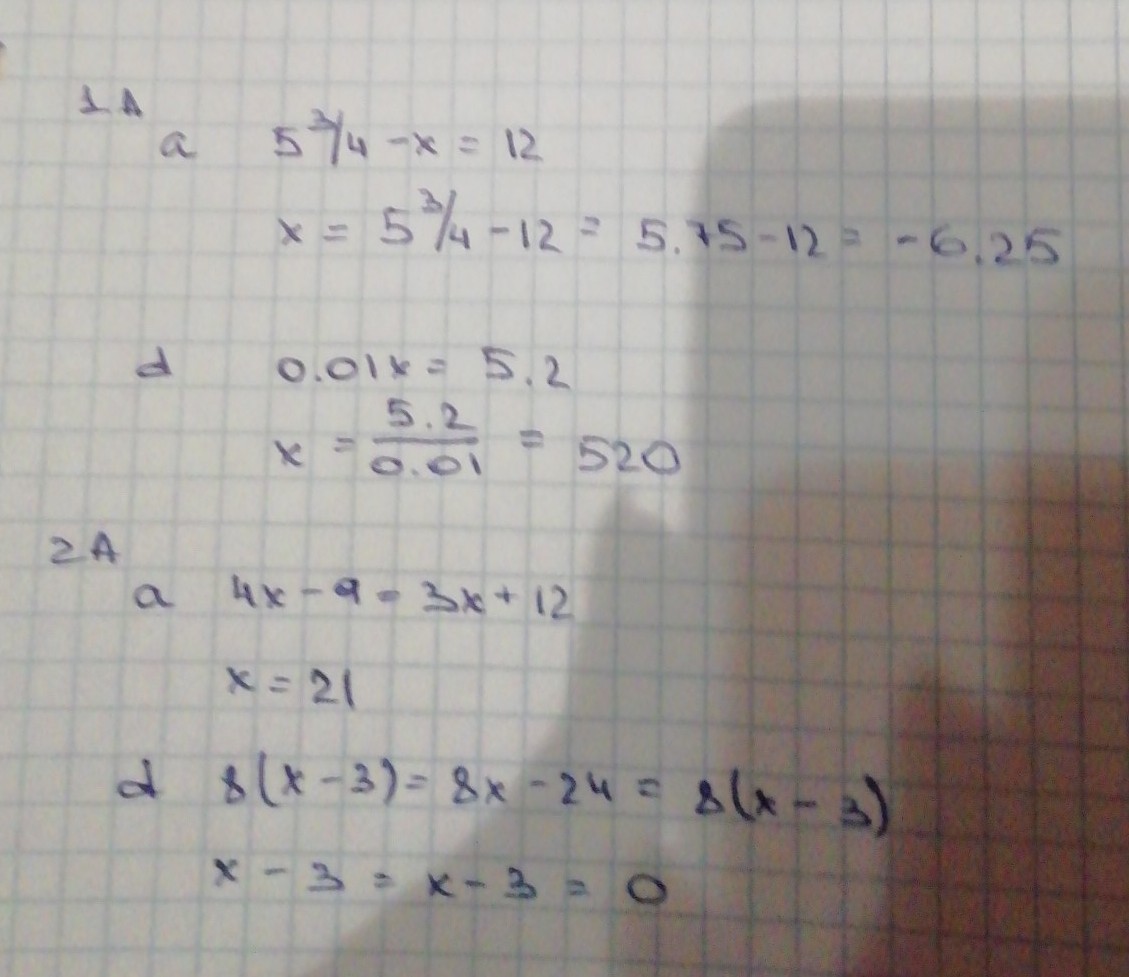 1A
a 5 3/4 - x = 12
x = 5 3/4 - 12 = 5.75 - 12 = -6.25
d 0.01x = 5.2
x = 5.2/0.01 = 520
2A
a 4x - 9 = 3x + 12
x = 21
d 8(x - 3) = 8x - 24 = 8(x - 3)
x - 3 = x - 3 = 0